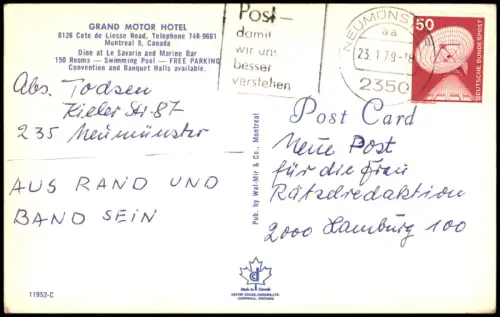 GRAND MOTOR HOTEL
6126 Cote de Liesse Road, Telephone 748-9661
Montreal 9, Canada
Dine at Le Savarin and Marine Bar
150 Rooms — Swimming Pool — FREE PARKING
Convention and Banquet Halls available.
Post-
damit
wir uns
besser
verstehen
NEUMÜNS
aa
23.1.79-18
2350
50
DEUTSCHE BUNDESPOST
Abs. Todsen
Kieler Str. 87
235 Neumünster
AUS RAND UND
BAND SEIN
Pub. by Wal-Mir & Co., Montreal
Post Card
Neue Post
für die Frau
Rätzelredaktion
2000 Hamburg 100
Made in Canada
11952-C